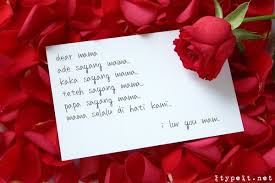 dear mama
ade sayang mama..
kaka sayang mama..
teteh sayang mama..
papa sayang mama..
mama selalu di hati kami..
i luv you mam
ltypeit.net